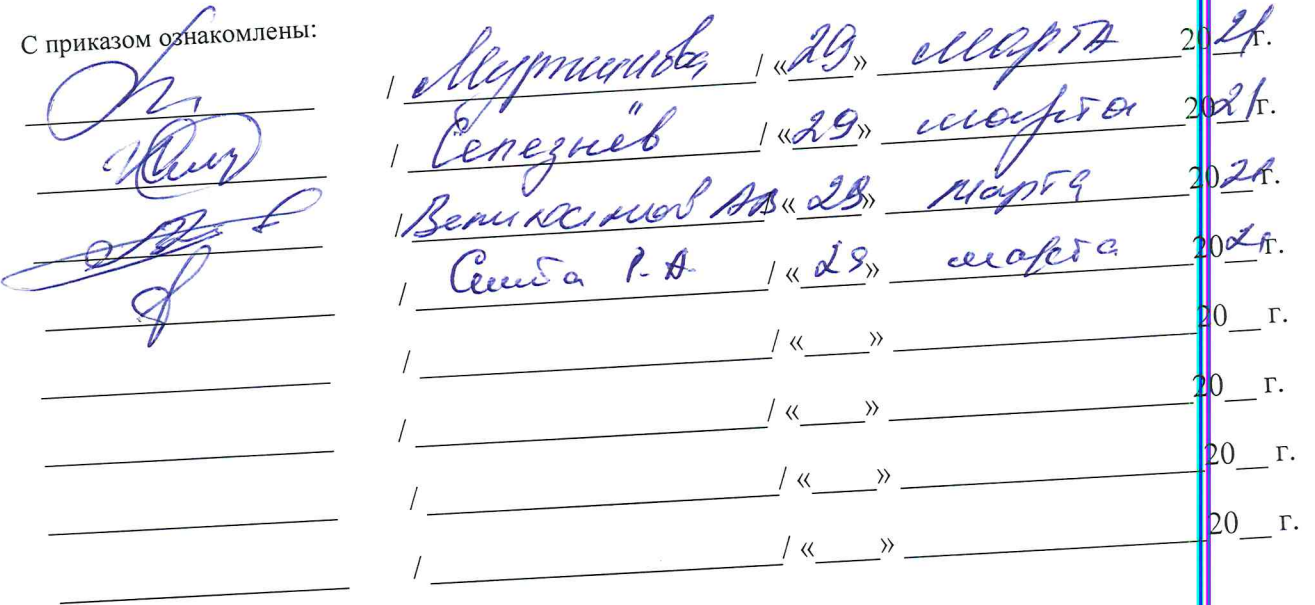 С приказом ознакомлены:
/ / «29» марта 2021г.
/ Селезнёв / «29» марта 2021г.
/ АВ « 29» марта 2021г.
/ Р.А. / « 29» марта 2021г.
/ / «___» 20__ г.
/ / «___» 20__ г.
/ / «___» 20__ г.
/ / «___» 20__ г.